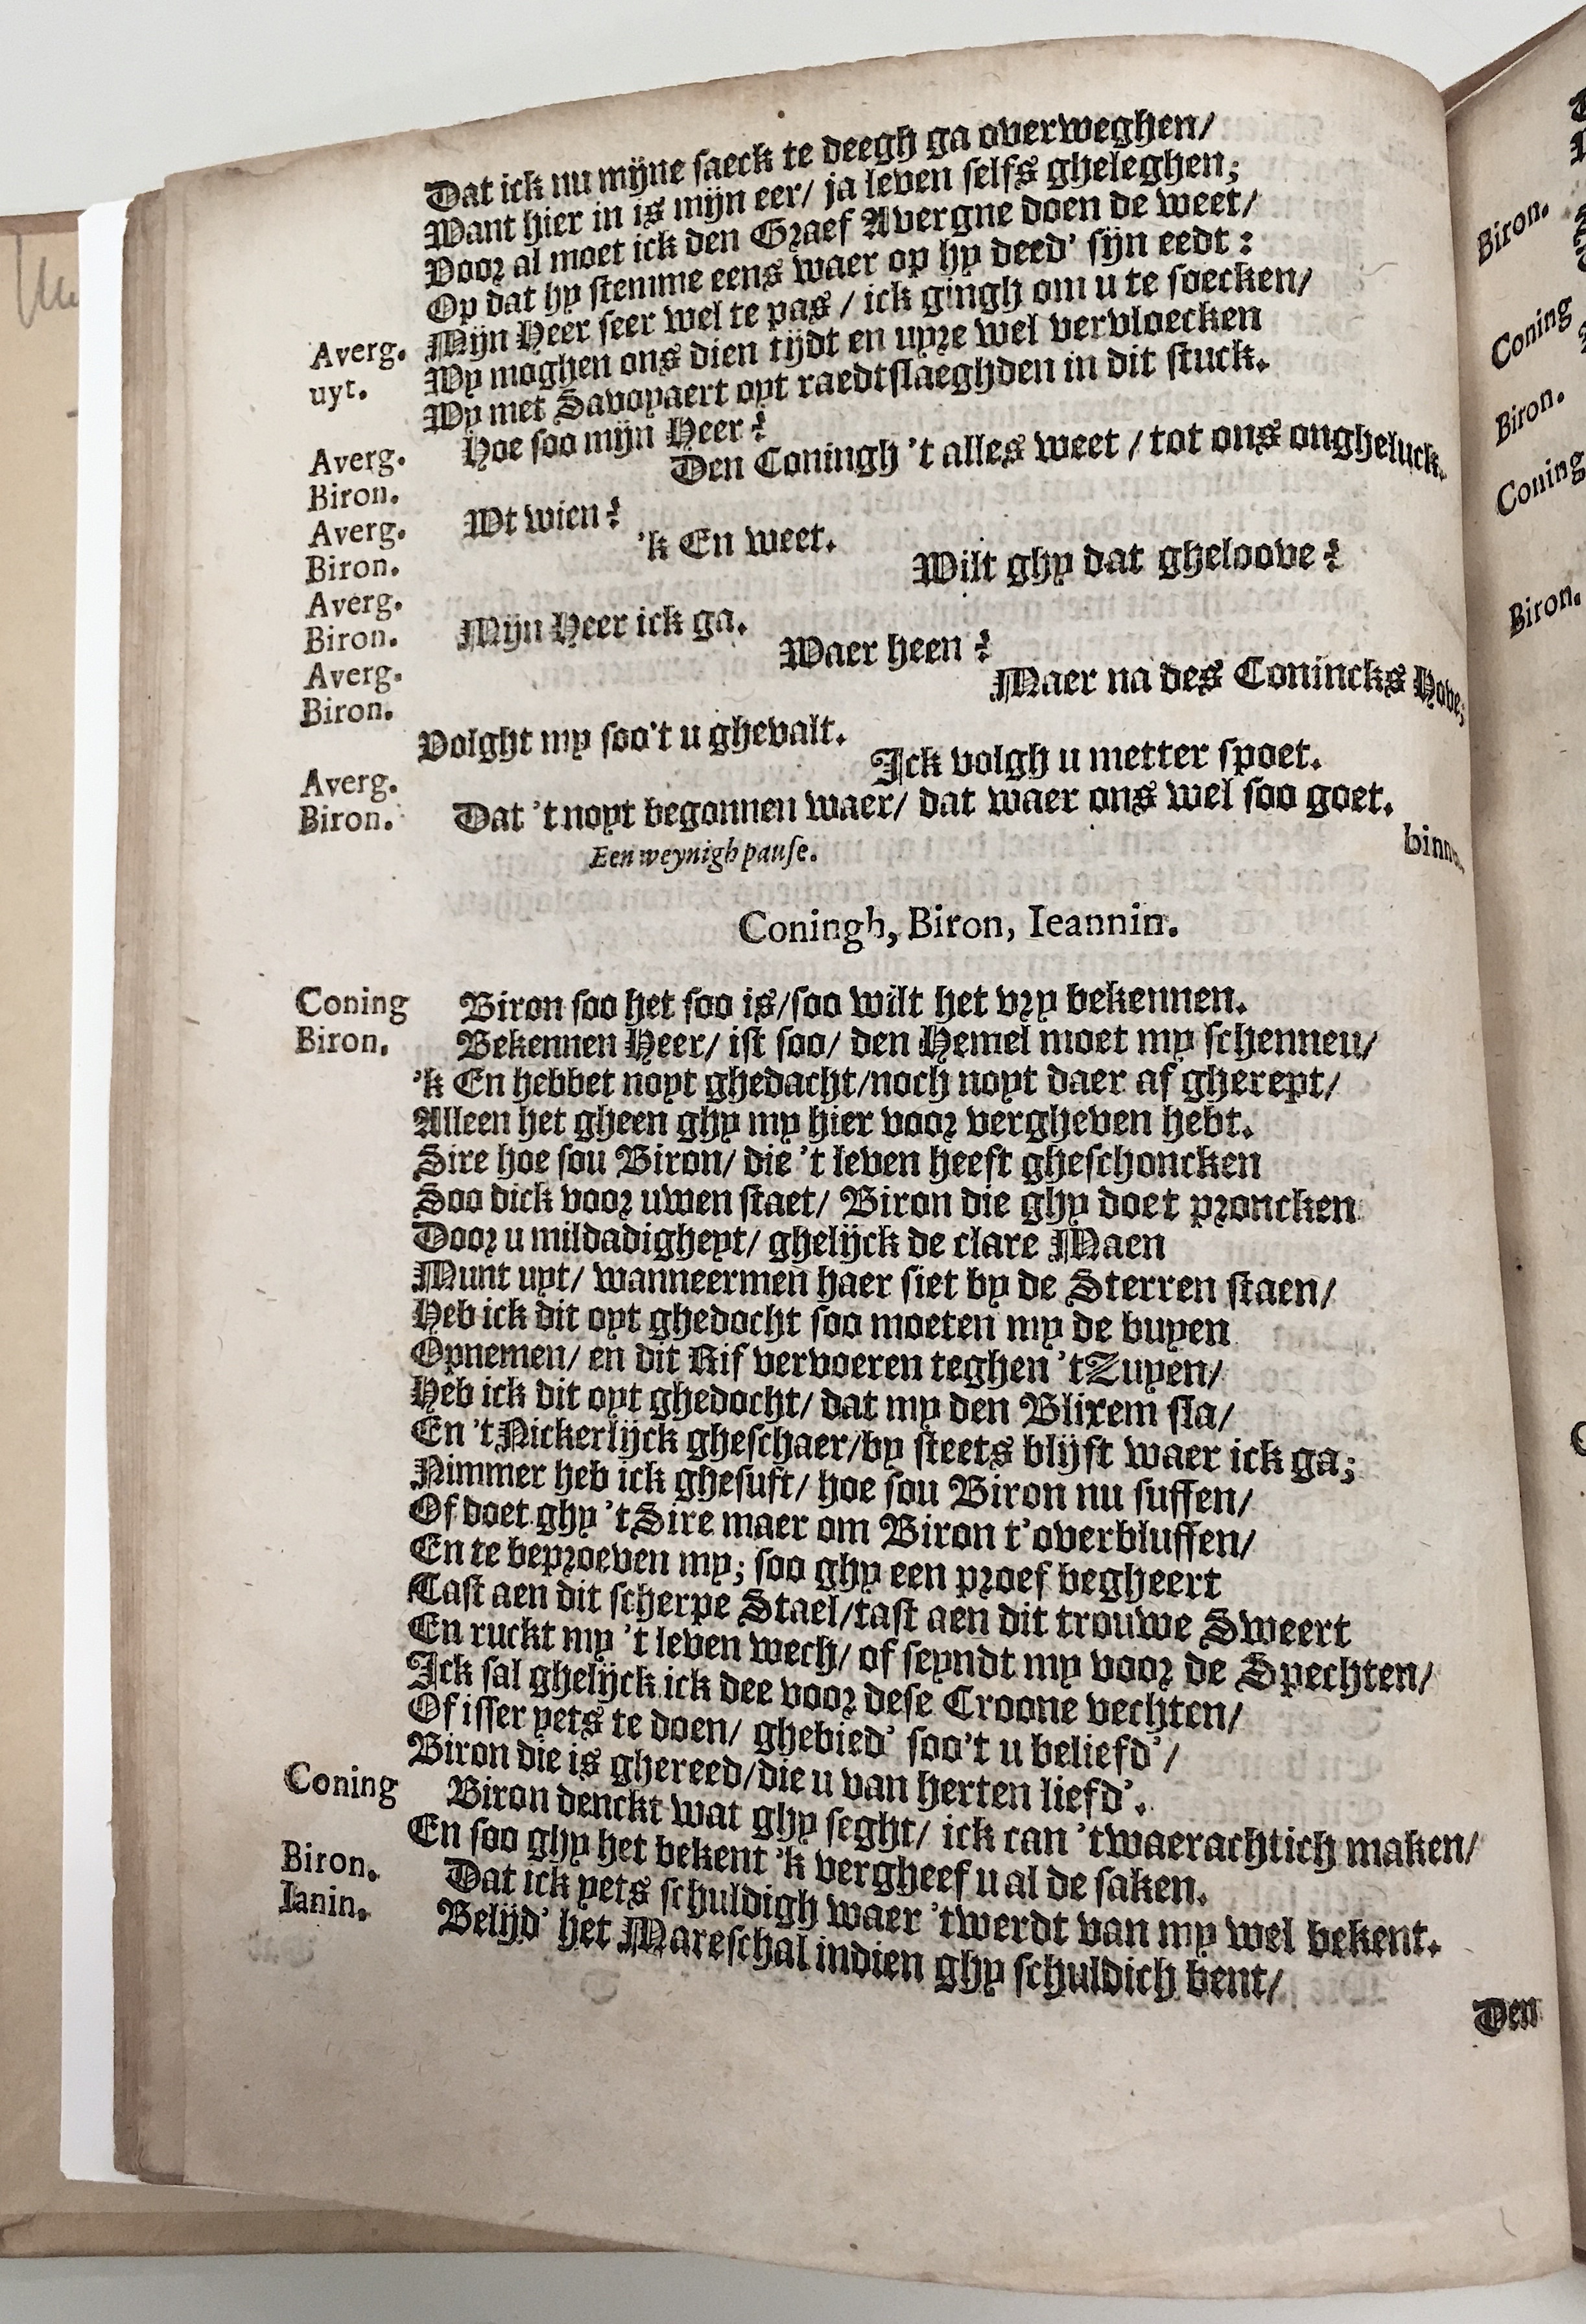 Dat ick nu mijne saeck te deegh ga overweghen/
Want hier in is mijn eer/ ja leven selfs gheleghen;
Voor al moet ick den Graef Avergne doen de weet/
Op dat hy stemme eens waer op hy deed' sijn eedt:
Averg. uyt. Mijn Heer seer wel te pas / ick gingh om u te soecken/
Wy moghen ons dien tijdt en uyre wel vervloecken
Wy met Savoyaert oyt raedtslaeghden in dit stuck.
Averg. Hoe soo mijn Heer?
Biron. Den Coningh 't alles weet / tot ons ongheluck.
Averg. Wt wien?
Biron. 'k En weet.
Averg. Wilt ghy dat gheloove?
Biron. Mijn Heer ick ga.
Averg. Waer heen?
Biron. Maer na des Conincks Hove;
Volght my soo't u ghevalt.
Averg. Ick volgh u metter spoet.
Biron. Dat 't noyt begonnen waer/ dat waer ons wel soo goet.
Een weynigh pause.
Coningh, Biron, Ieannin.
Coning Biron soo het soo is/soo wilt het vry bekennen.
Biron. Bekennen Heer/ ist soo/ den Hemel moet my schenneu/
'k En hebbet noyt ghedacht/noch noyt daer af gherept/
Alleen het gheen ghy my hier voor vergheven hebt.
Sire hoe sou Biron/ die 't leven heeft gheschoncken
Soo dick voor uwen staet/ Biron die ghy doet proncken
Door u mildadigheyt/ ghelijck de clare Maen
Munt uyt/ wanneermen haer siet by de Sterren staen/
Heb ick dit oyt ghedocht soo moeten my de buyen
Opnemen/ en dit Rif vervoeren teghen 't Zuyen/
Heb ick dit oyt ghedocht/ dat my den Blixem sla/
En 't Nickerlijck gheschaer/by steets blijft waer ick ga;
Nimmer heb ick ghesuft/ hoe sou Biron nu suffen/
Of doet ghy 't Sire maer om Biron t'overbluffen/
En te beproeven my; soo ghy een proef begheert
Tast aen dit scherpe Stael/tast aen dit trouwe Sweert
En ruckt my 't leven wech/ of seyndt my voor de Spechten/
Ick sal ghelijck ick dee voor dese Croone vechten/
Of isser yets te doen/ ghebied' soo't u beliefd'/
Biron die is ghereed/die u van herten liefd'.
Coning Biron denckt wat ghy seght/ ick can 't waerachtich maken/
En soo ghy het bekent 'k vergheef u al de saken.
Biron. Dat ick yets schuldigh waer 't werdt van my wel bekent.
Ianin. Belijd' het Mareschal indien ghy schuldich bent/
Den
Biron.
Coning
Biron.
Coning
Biron.